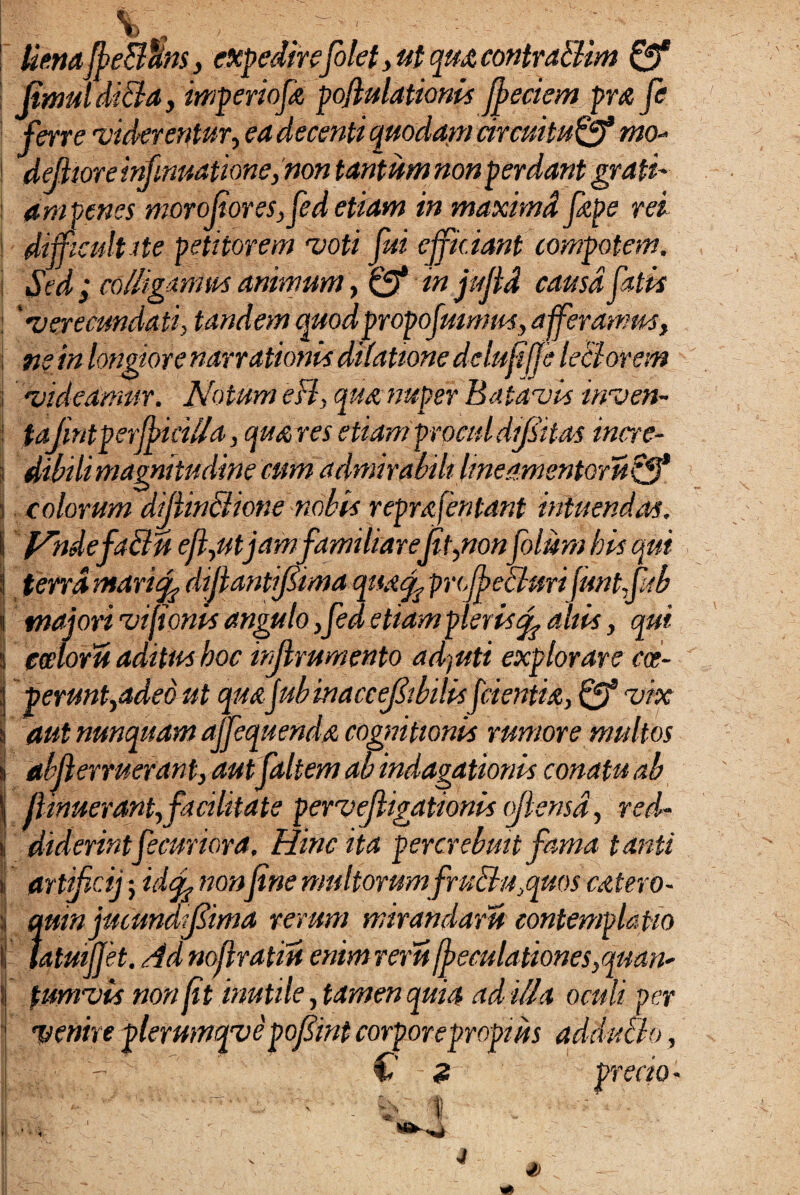 liena ſpectans, expedire ſolet, ut quæ contractim &
ſimul dicta, imperioſæ poſtulationis ſpeciem præ ſe
ferre viderentur, ea decenti quodam circuitu & mo-
deſtiore inſinuatione, non tantùm non perdant grati-
am penes moroſiores, ſed etiam in maximâ ſæpe rei
difficultate petitorem voti ſui efficiant compotem.
Sed; colligamus animum, & in juſtâ causâ ſatis
verecundati, tandem quod propoſuimus, afferamus,
ne in longiore narrationis dilatione deluſiſſe lectorem
videamur. Notum eſt, quæ nuper Batavis inven-
ta ſint perſpicilla, quæ res etiam procul diſſitas incre-
dibili magnitudine cum admirabili lineamentorũ &
colorum diſtinctione nobis repræſentant intuendas.
Vnde factũ eſt, ut jam familiare ſit, non ſolùm his qui
terrâ mariq́; diſtantiſſima quæq́; proſpecturi ſunt, ſub
majori viſionis angulo, ſed etiam plerisq́; aliis, qui
cœlorũ aditus hoc inſtrumento adjuti explorare cœ-
perunt, adeò ut quæ ſub inacceſſibilis ſcientiæ, & vix
aut nunquam aſſequendæ cognitionis rumore multos
abſterruerant, aut ſaltem ab indagationis conatu ab
ſtinuerant, facilitate perveſtigationis oſtensâ, red-
diderint ſecuriora. Hinc ita percrebuit fama tanti
artificij; idq́; non ſine multorum fructu, quos cætero-
quin jucundiſſima rerum mirandarũ contemplatio
latuiſſet. Ad noſtratiũ enim rerũ ſpeculationes, quan-
tumvis non ſit inutile, tamen quia ad illa oculi per
venire plerumqvè poſſint corpore propiùs adducto,
C 2 precio-